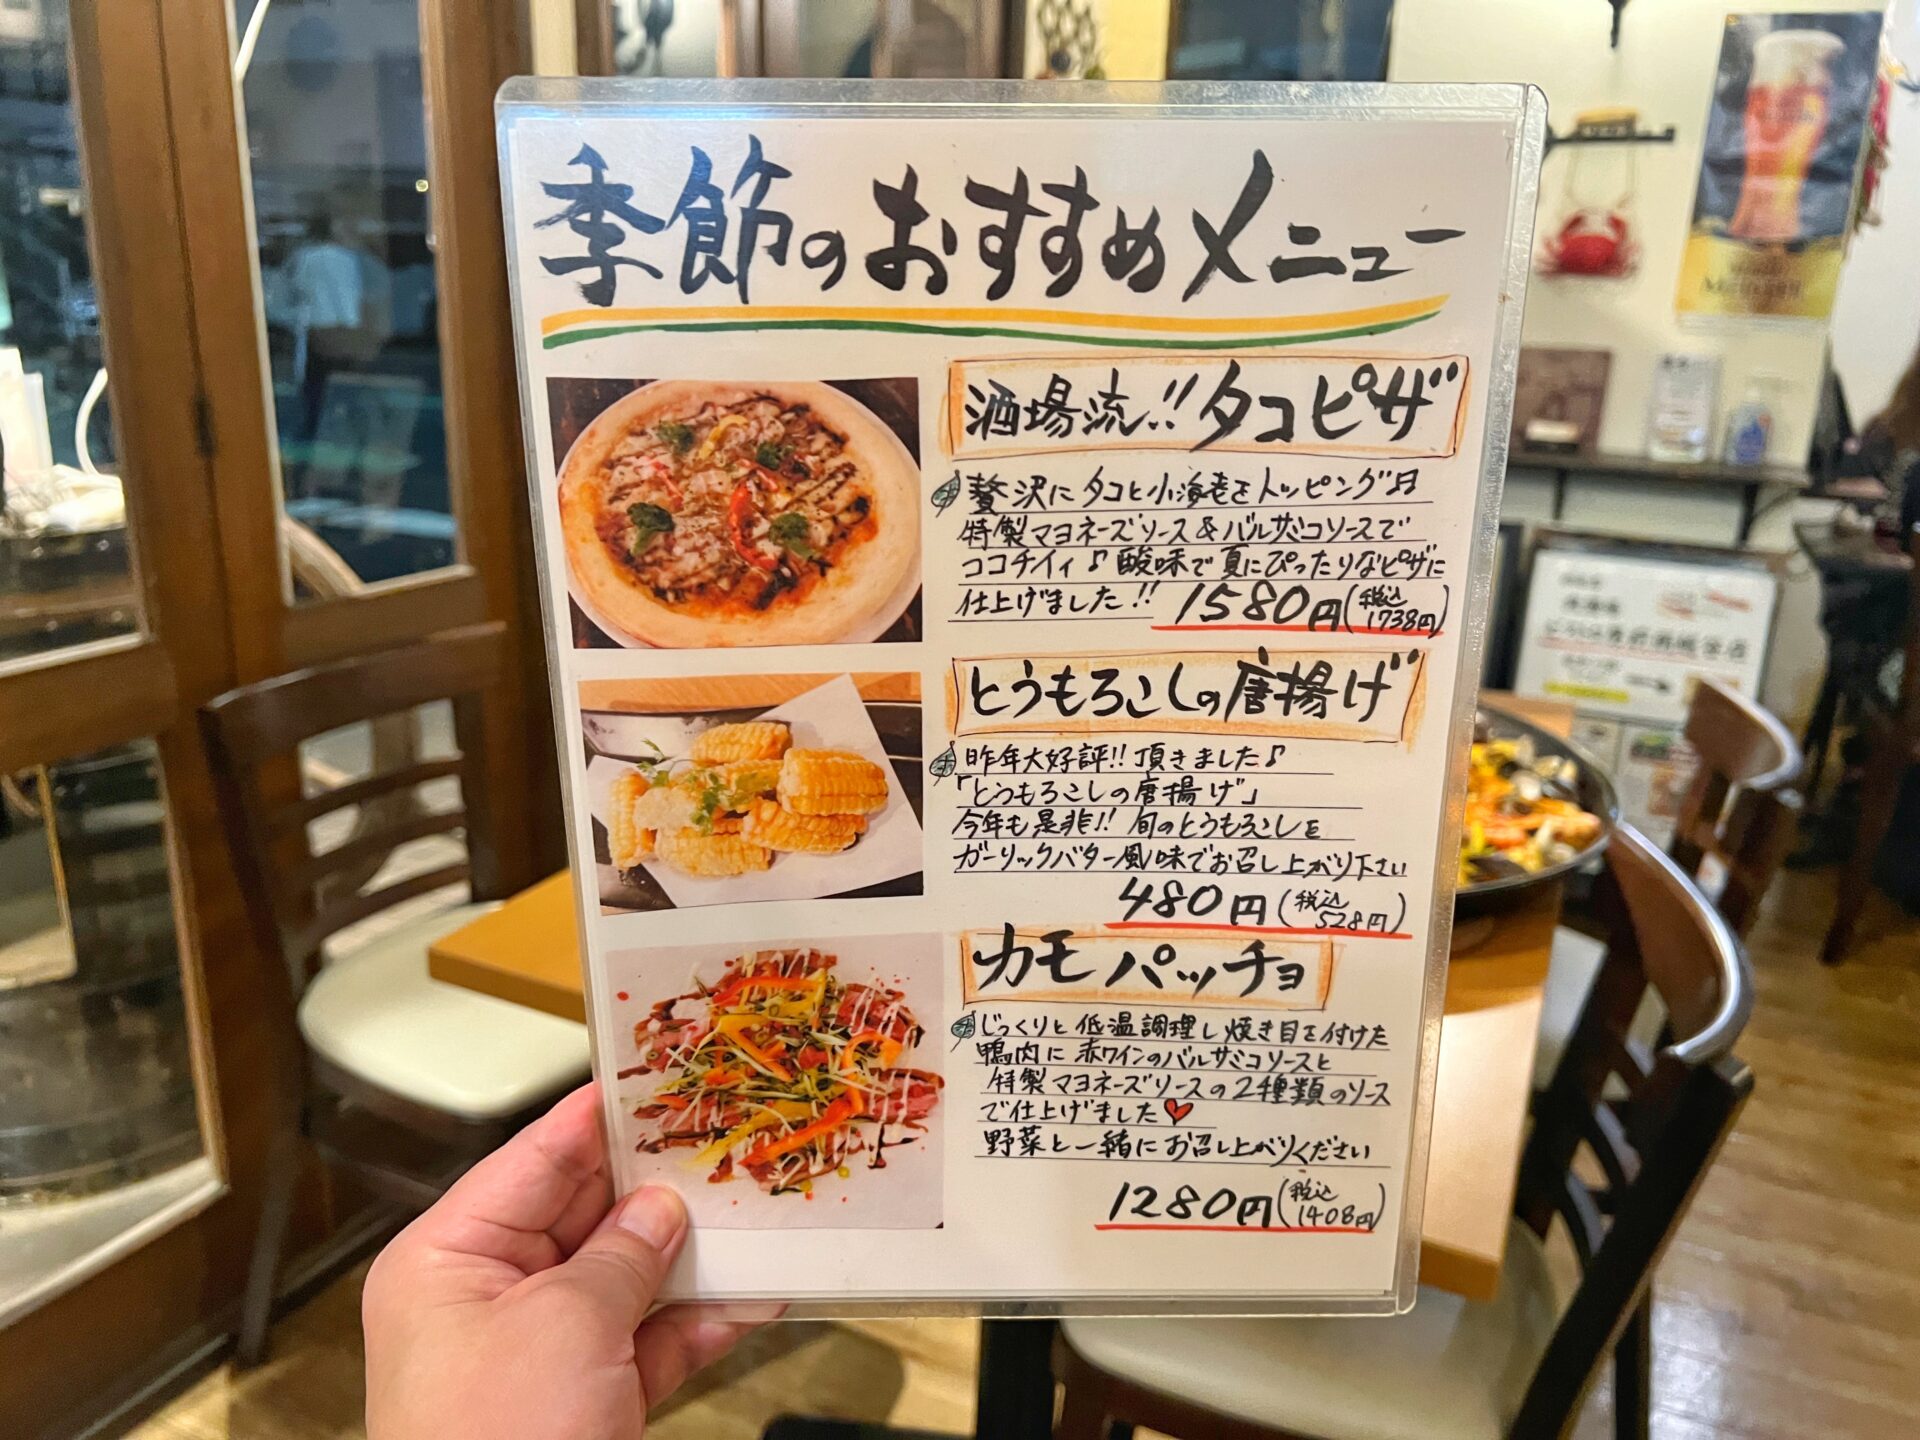 季節のおすすめメニュー
酒場流!!タコピザ
贅沢にタコと小海老をトッピング♫
特製マヨネーズソース&バルサミコソースで
ココチイイ♪酸味で夏にぴったりなピザに
仕上げました!! 1580円(税込1738円)
とうもろこしの唐揚げ
昨年大好評!!頂きました♪
「とうもろこしの唐揚げ」
今年も是非!!旬のとうもろこしを
ガーリックバター風味でお召し上がり下さい
480円(税込528円)
カモパッチョ
じっくりと低温調理し焼き目を付けた
鴨肉に赤ワインのバルサミコソースと
特製マヨネーズソースの2種類のソース
で仕上げました
野菜と一緒にお召し上がりください
1280円(税込1408円)